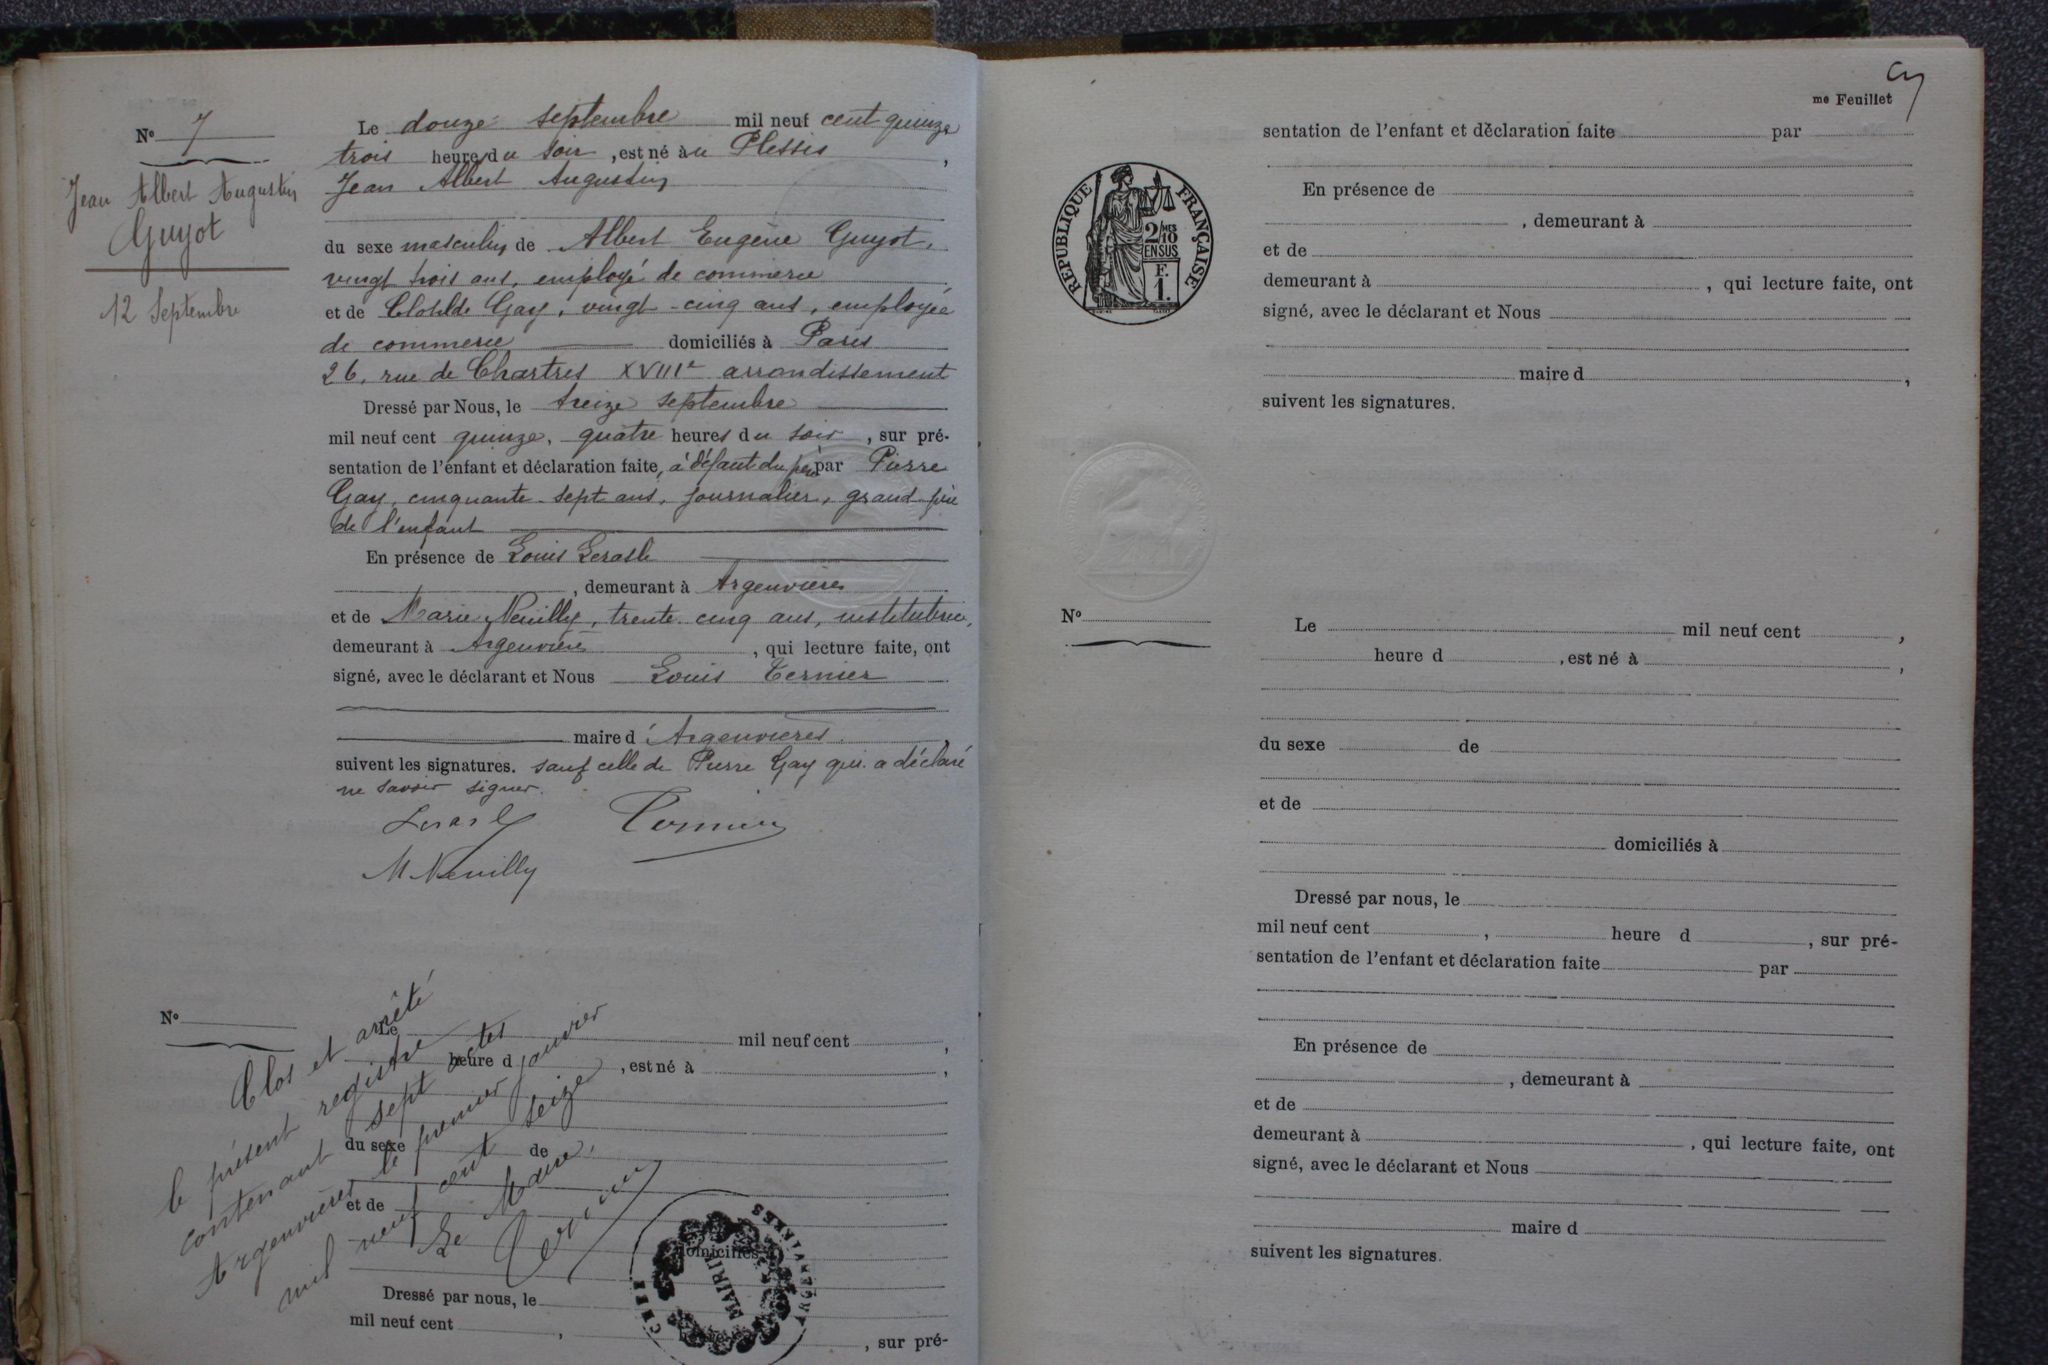 No 7
Jean Albert Augustin
Guyot
12 Septembre
Le douze septembre mil neuf cent quinze
trois heure du soir, est né au Plessis,
Jean Albert Augustin
du sexe masculin de Albert Eugène Guyot,
vingt trois ans, employé de commerce
et de Clotilde Gay, vingt-cinq ans, employée
de commerce domiciliés à Paris
26, rue de Chartres XVIIIe arrondissement
Dressé par Nous, le treize septembre
mil neuf cent quinze, quatre heures du soir, sur pré-
sentation de l'enfant et déclaration faite, à défaut du père par Pierre
Gay, cinquante-sept ans, journalier, grand père
de l'enfant
En présence de Louis
, demeurant à Argenvières
et de Marie Neuilly, trente-cinq ans, institutrice,
demeurant à Argenvières, qui lecture faite, ont
signé, avec le déclarant et Nous Louis Ternier
maire d'Argenvières,
suivent les signatures. sauf celle de Pierre Gay qui a déclaré
ne savoir signer.
M Neuilly
No
Le mil neuf cent ,
heure d , est né à ,
du sexe de
et de
domiciliés
Dressé par nous, le
mil neuf cent , , sur pré-
Clos et arrêté
le présent registre
contenant sept actes
Argenvières le premier janvier
mil neuf cent seize
Le Maire,
MAIRIE
ARGENVIERES
CHER
me Feuillet
sentation de l'enfant et déclaration faite par
En présence de
, demeurant à
et de
demeurant à , qui lecture faite, ont
signé, avec le déclarant et Nous
maire d ,
suivent les signatures.
RÉPUBLIQUE FRANÇAISE
2/MES
10
EN SUS
F.
1.
No
Le mil neuf cent ,
heure d , est né à ,
du sexe de
et de
domiciliés à
Dressé par nous, le
mil neuf cent , heure d , sur pré-
sentation de l'enfant et déclaration faite par
En présence de
, demeurant à
et de
demeurant à , qui lecture faite, ont
signé, avec le déclarant et Nous
maire d
suivent les signatures.